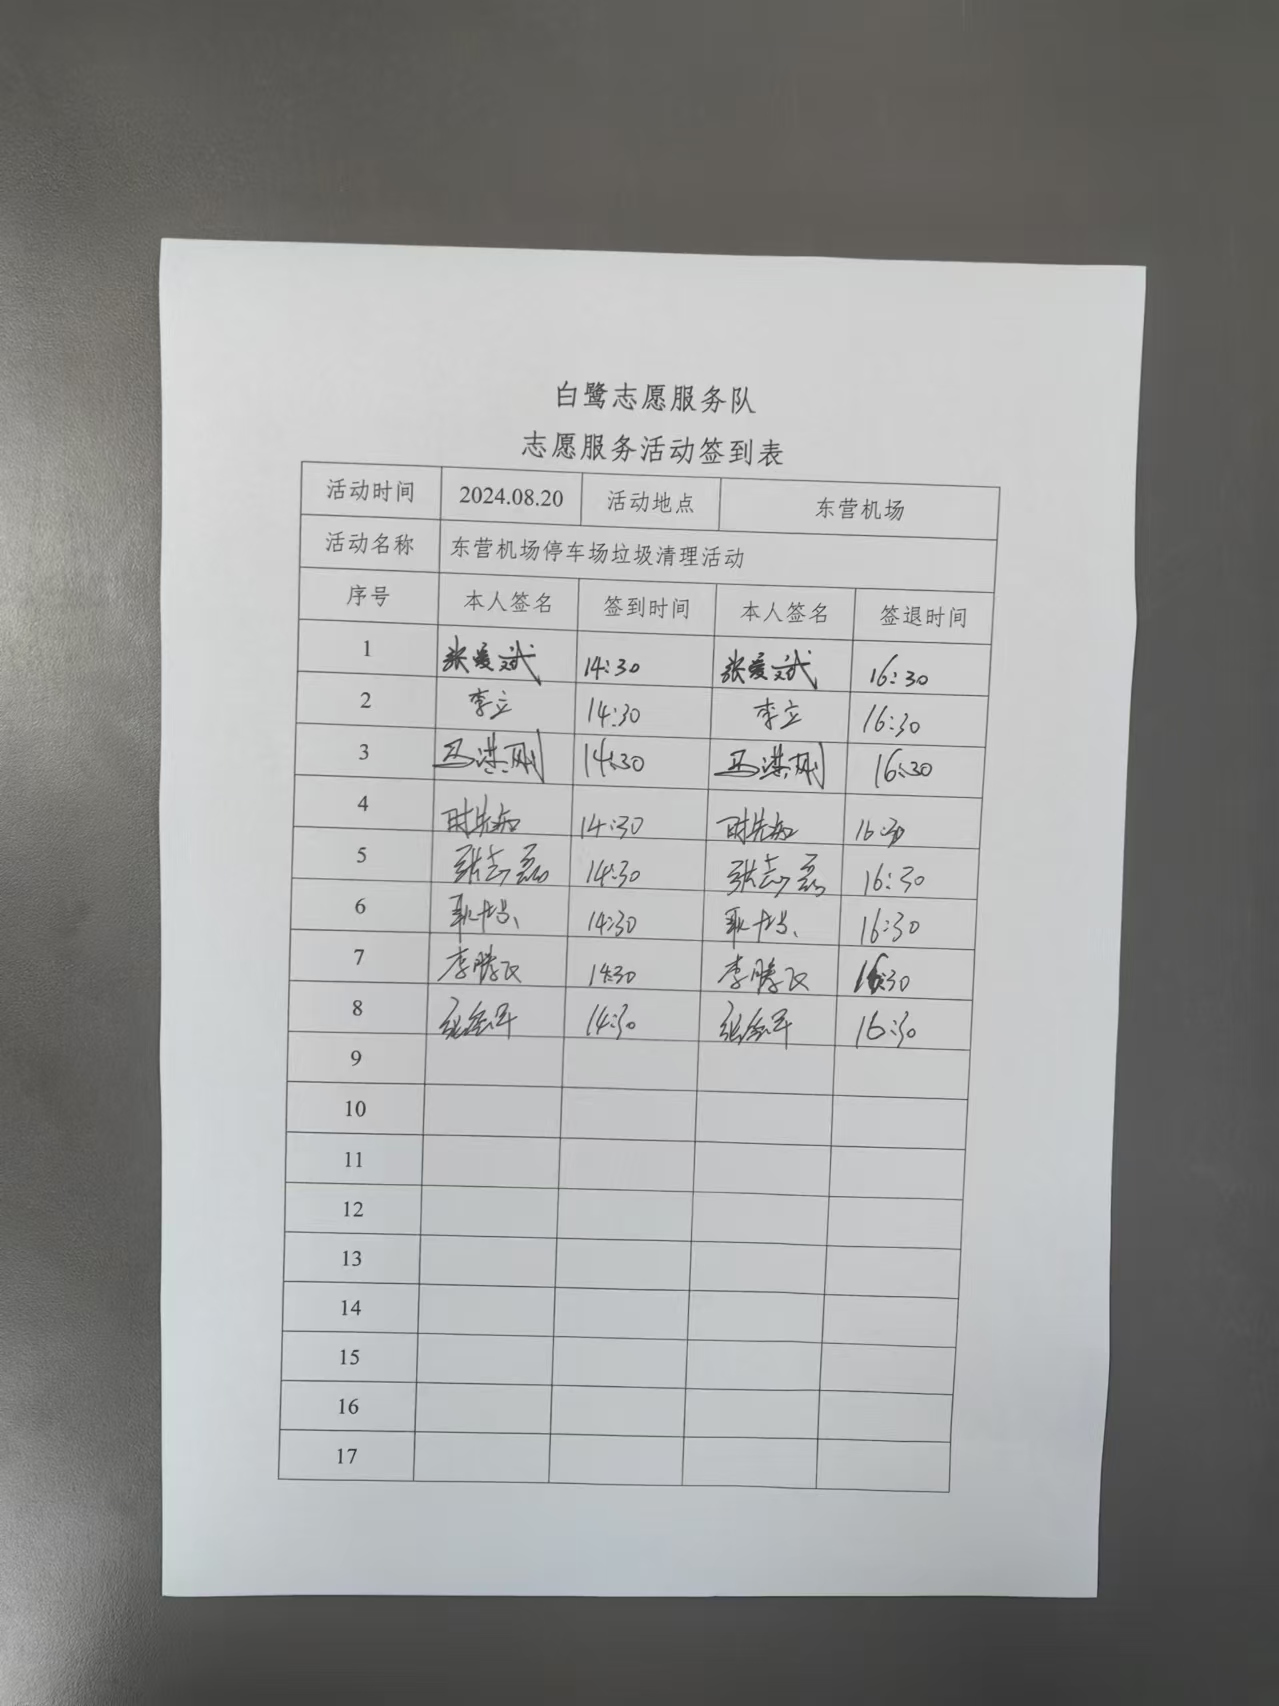 白鹭志愿服务队
志愿服务活动签到表
活动时间 2024.08.20 活动地点 东营机场
活动名称 东营机场停车场垃圾清理活动
序号 本人签名 签到时间 本人签名 签退时间
1 张爱斌 14:30 张爱斌 16:30
2 李立 14:30 李立 16:30
3 马洪刚 14:30 马洪刚 16:30
4 时先知 14:30 时先知 16:30
5 张志磊 14:30 张志磊 16:30
6 14:30 16:30
7 李腾 14:30 李腾 16:30
8 张 14:30 张 16:30
9
10
11
12
13
14
15
16
17